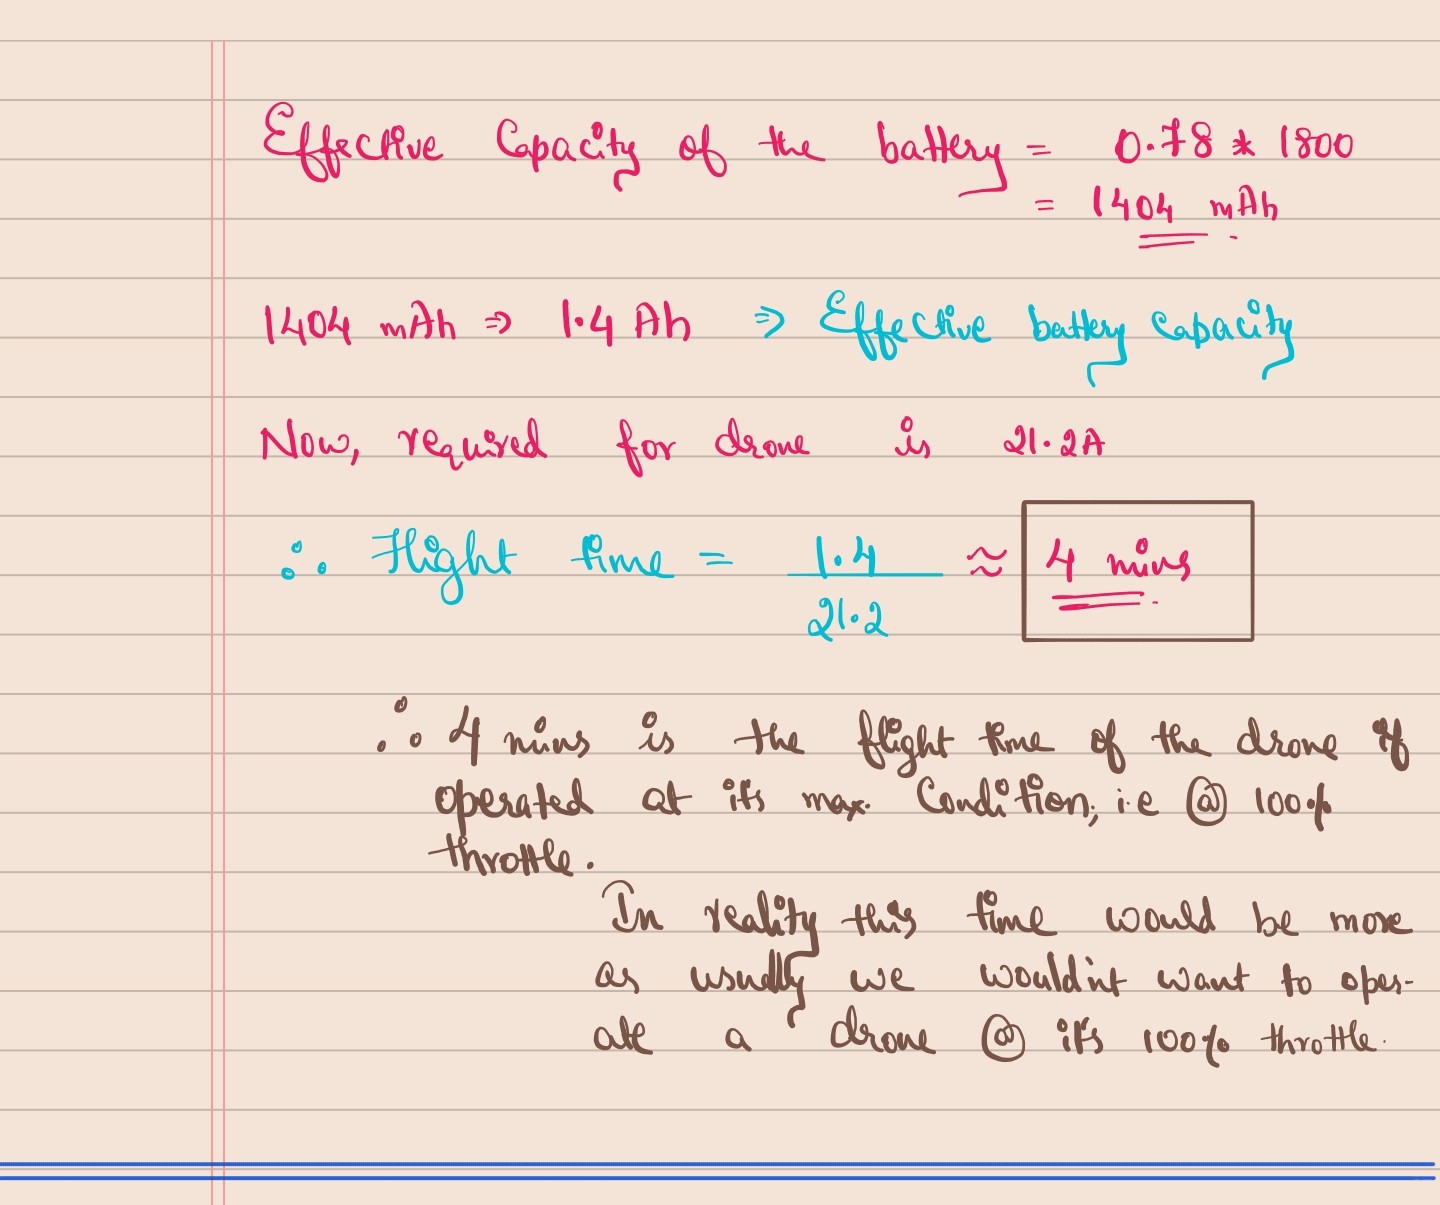 Effective Capacity of the battery = 0.78 * 1800
= 1404 mAh
1404 mAh ⇒ 1.4 Ah ⇒ Effective battery capacity
Now, required for drone is 21.2A
∴ Flight time = 1.4 ≈ 4 mins
21.2
∴ 4 mins is the flight time of the drone if
operated at it's max. Condition, i.e @ 100%
throttle.
In reality this time would be more
as usually we wouldn't want to oper-
ate a drone @ it's 100% throttle.